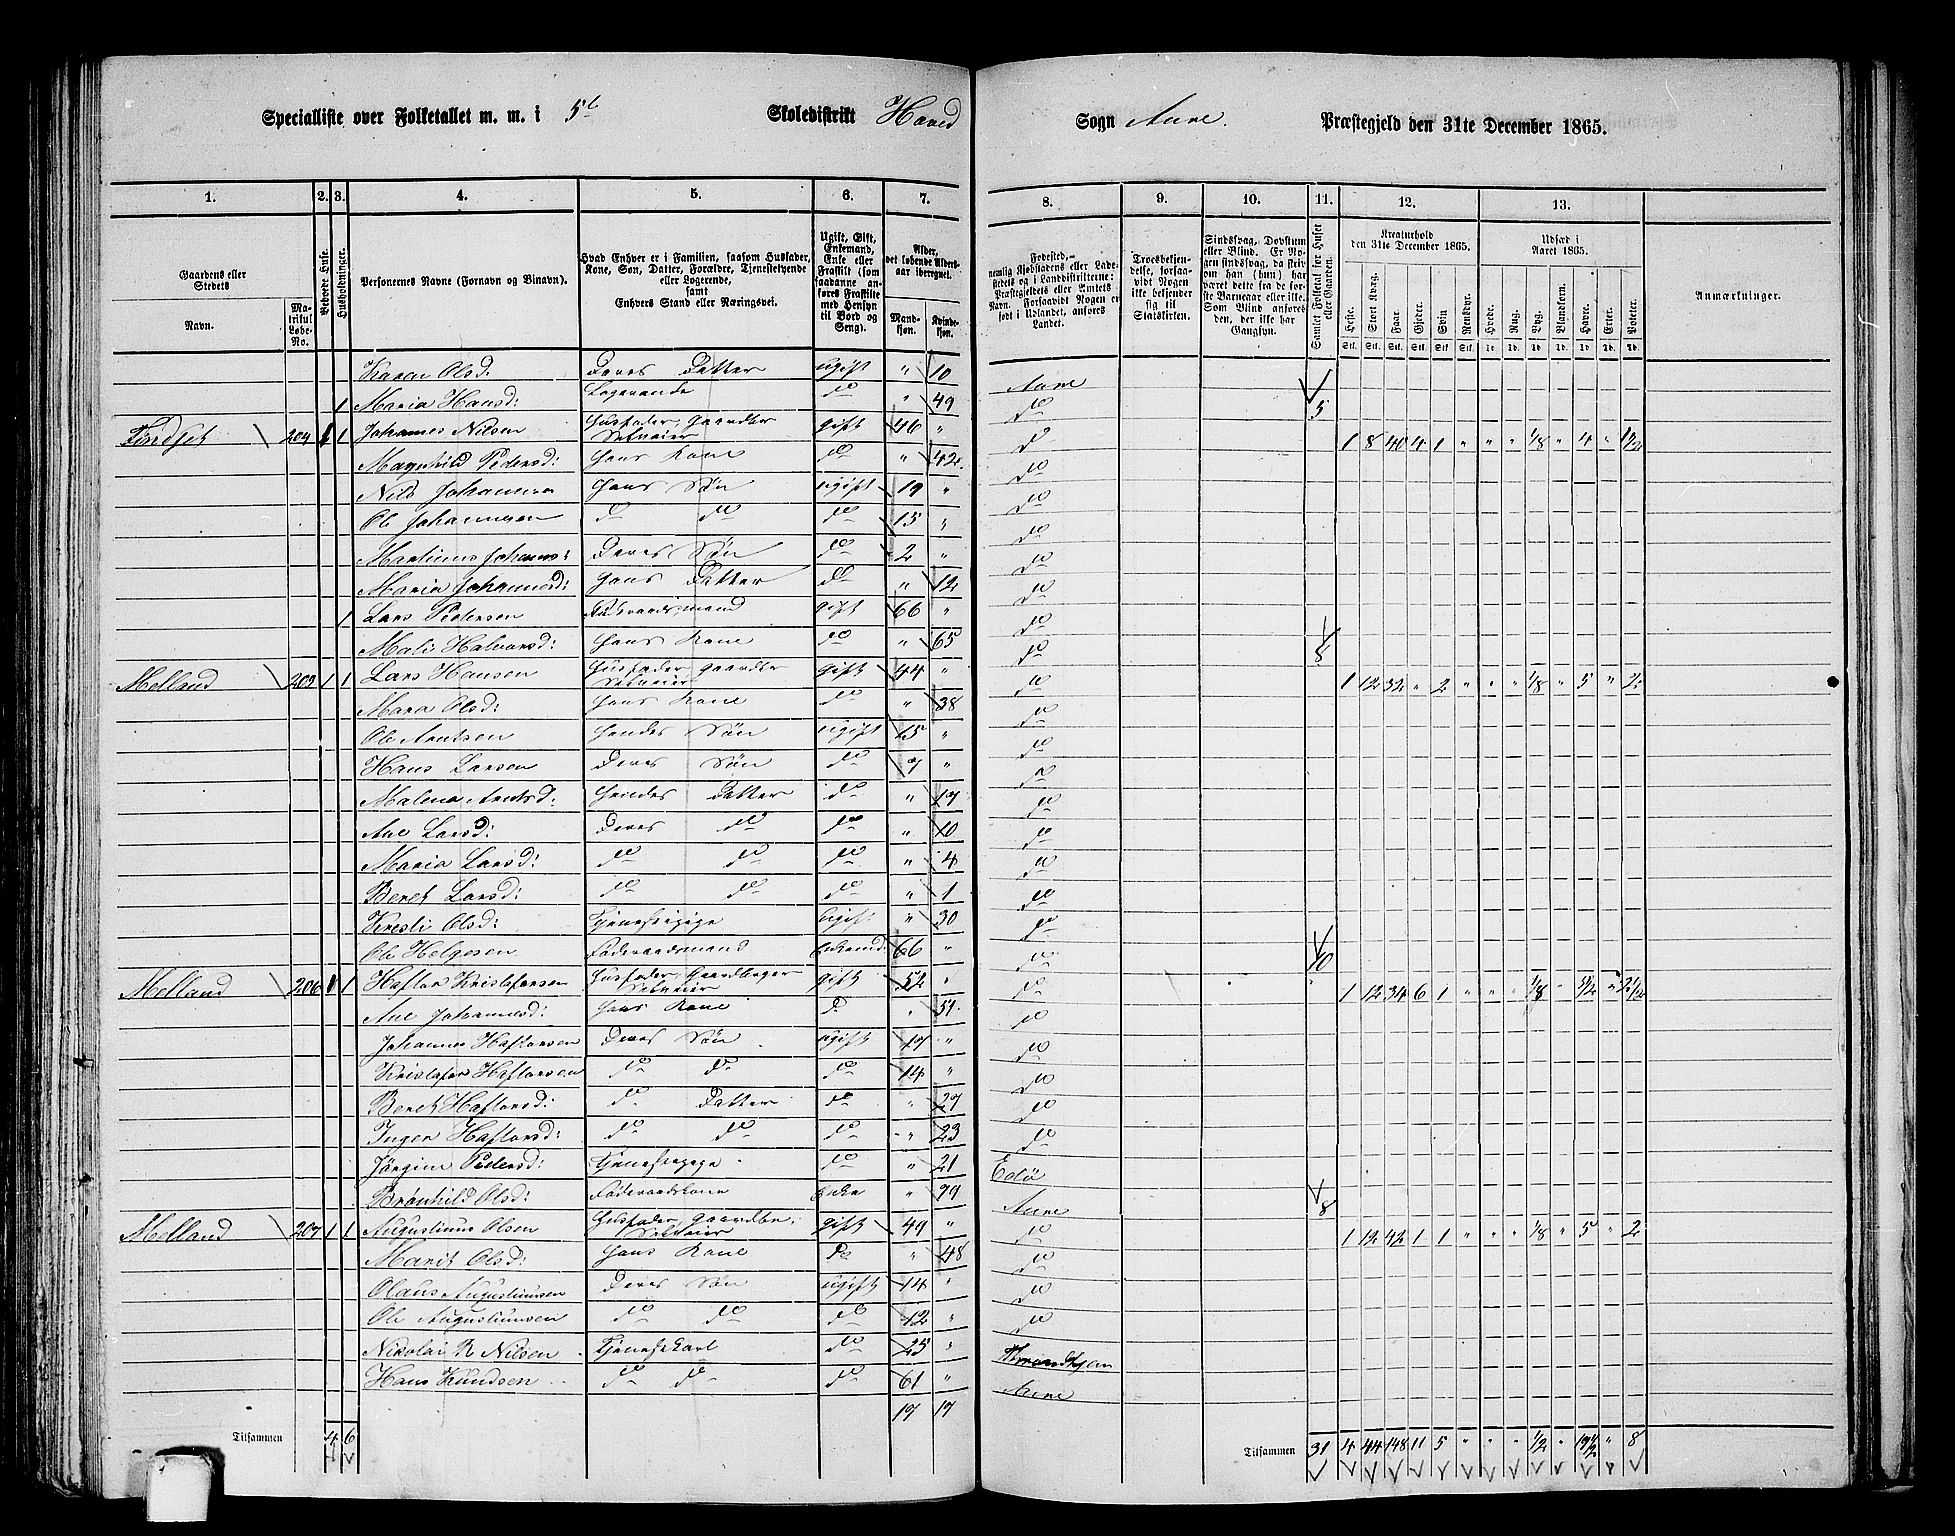 Specialliste over Folketallet m. m. i 5te Skoledistrikt Hoved Sogn Aure. Præstegjeld den 31te December 1865.
1. 2. 3. 4. 5. 6. 7. 8. 9. 10. 11. 12. 13.
Gaardens eller Stedets
Navn.
Matrikul Løbe-No.
Beboede Huse.
Husholdninger.
Personernes Navne (Fornavn og Binavn).
Hvad Enhver er i Familien, saasom Husfader, Kone, Søn, Datter, Forældre, Tjenestetyende eller Logerende, samt Enhvers Stand eller Næringsvei.
Ugift, Gift, Enkemand, Enke eller Fraskilt (som saadanne anføres Fraskilte med Hensyn til Bord og Seng).
Alder, det løbende Aldersaar iberegnet.
Mandkjøn. Kvindekjøn.
Fødested, nemlig Kjøbstadens eller Ladestedets og i Landdistrikterne: Præstegjeldets eller Amtets Navn. Forsaavidt Nogen er født i Udlandet, anføres Landet.
Troesbekjendelse, forsaavidt Nogen ikke bekjender sig til Statskirken.
Sindssvag, Døvstum eller Blind. Er Nogen sindssvag, da skrives om han (hun) har været dette fra de første Barneaar eller ikke. Som Blind ansføres den, der ikke har Gangsyn.
Samlet Folketal for Huset eller Gaarden.
Kreaturhold den 31te December 1865.
Heste. Stort Kvæg. Faar. Gjeder. Svin Rensdyr.
Udsæd i Aaret 1865.
Hvede. Rug. Byg. Blandkorn. Havre. Erter. Poteter.
Anmærkninger.
Karen Olsd: Deres Datter ugift " 10 Aure
1 Maria Hansd: Logerende do " 49 do 5
204 1 1 Johannes Nilsen Husfader, Gaardbr Selveier gift 46 " do 1 8 40 4 1 " " " 1/8 " 4 " 1 1/2
Magnhild Pedersd: Hans Kone do " 42 do
Nils Johannsen Hans Søn ugift 19 " do
Ole Johannsen do do do 15 " do
Martinus Johanns: Deres Søn do 2 " do
Maria Johannesd: Hans Datter do " 12 do
1 Lars Pedersen gift 66 " do
Mali Halvorsd: Hans Kone do " 65 do 8
Melland 205 1 1 Lars Hansen Husfader, Gaardbr Selveier gift 44 " do 1 12 32 " 2 " " " 1/8 " 5 " 2
Mara Olsd: Hans Kone do " 38 do
Ole Arntsen Hendes Søn ugift 15 " do
Hans Larsen Deres Søn do 7 " do
Malena Arntsd: Hendes Datter do " 17 do
Ane Larsd: Deres do do " 10 do
Maria Larsd: do do do " 4 do
Beret Larsd: do do do " 1 do
Kresti Olsd: Tjenestepige Ugift " 30 do
Ole Helgesen Føderaadsmand Enkemd: 66 " do 10
Melland 206 1 1 Haftor Kristofersen Husfader, Gaardbruger Selveier gift 52 " do 1 12 34 6 1 " " " 1/8 " 5 1/2 " 2 1/2
Ane Johannesd: Hans Kone do " 51 do
Johannes Haftorsen Deres Søn ugift 17 " do
Kristofer Haftorsen do do do 14 " do
Beret Haftorsd: do Datter do " 27 do
Inger Haftorsd: do do do " 23 do
Jørgine Pedersd: Tjenestepige do " 21 Edø
Brønhild Olsd: Føderaadskone Enke " 79 Aure 8
Melland 207 1 1 Augustinus Olsen Husfader, Gaardbr. Selveier gift 49 " do 1 12 42 1 1 " " " 1/8 " 5 " 2
Marit Olsd: Hans Kone do " 48 do
Olaus Augustinusen Deres Søn ugift 14 " do
Ole Augustinusen do do do 12 " do
Nikolai R Nilsen Tjenestekarl do 25 " Throndhjem
Hans Knudsen do do do 61 " Aure
17 17
Tilsammen 4 6 Tilsammen 31 4 44 148 11 5 " " " 1/2 " 19 1/2 " 8